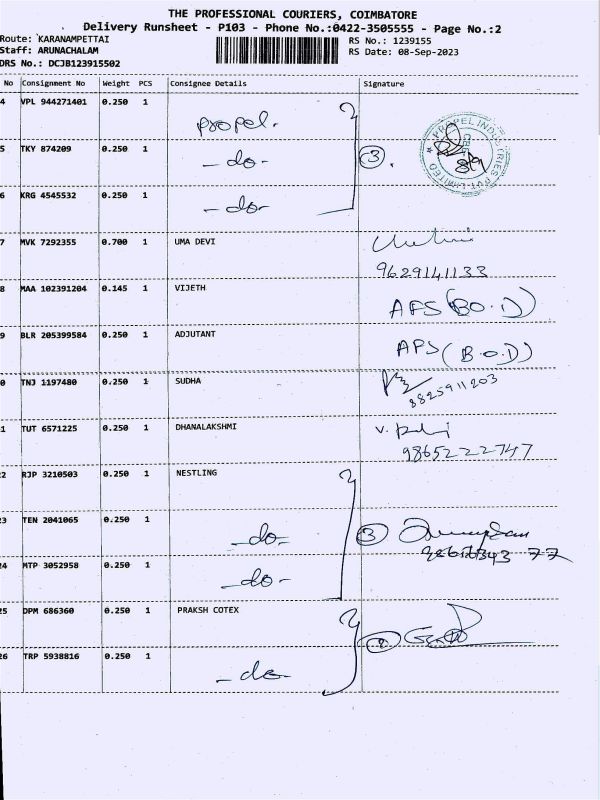 THE PROFESSIONAL COURIERS, COIMBATORE
Delivery Runsheet - P103 - Phone No.:0422-3505555 - Page No.:2
Route: KARANAMPETTAI
RS No.: 1239155
Staff: ARUNACHALAM
RS Date: 08-Sep-2023
DRS No.: DCJB123915502
No Consignment No Weight PCS Consignee Details Signature
4 VPL 944271401 0.250 1 propel.
PROPEL INDUSTRIES PVT. LIMITED
8/9
5 TKY 874209 0.250 1 -do- 3.
6 KRG 4545532 0.250 1 -do-
7 MVK 7292355 0.700 1 UMA DEVI
9629141133
8 MAA 102391204 0.145 1 VIJETH AFS (B.O.D)
9 BLR 205399584 0.250 1 ADJUTANT AFS (B.O.D)
0 TNJ 1197480 0.250 1 SUDHA
8825911203
1 TUT 6571225 0.250 1 DHANALAKSHMI
9865222747
2 RJP 3210503 0.250 1 NESTLING
3 TEN 2041065 0.250 1 -do- 3
4 MTP 3052958 0.250 1 -do-
25 DPM 686360 0.250 1 PRAKSH COTEX
26 TRP 5938816 0.250 1 -do-